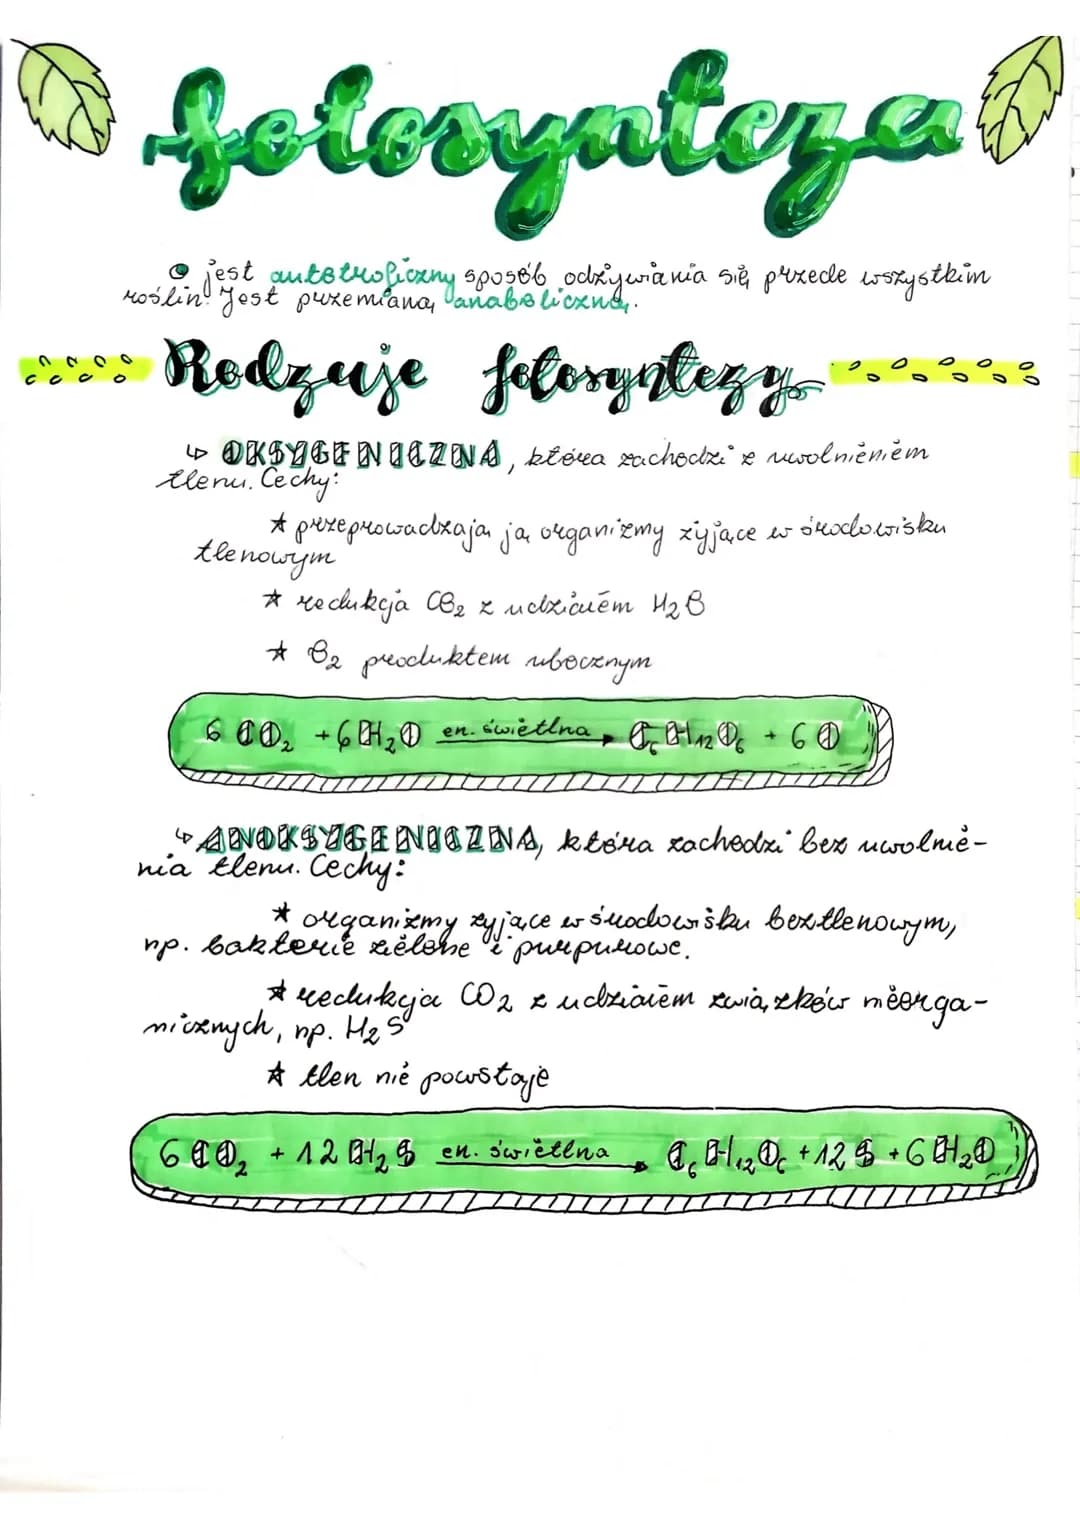 fotosynteza
jest autotroficzny sposób odżywiania się przede wszystkim
roślin. Jest przemianą anaboliczną.
Rodzaje fotosyntezy
↳ OKSYGENICZNA, która zachodzi z uwolnieniem
tlenu. Cechy:
★ przeprowadzają ją organizmy żyjące w środowisku
tlenowym
★ redukcja CO₂ z udziałem H₂O
★ O₂ produktem ubocznym
6 CO₂ + 6 H₂O en. świetlna → C₆H₁₂O₆ + 6 O
↳ ANOKSYGENICZNA, która zachodzi bez uwolnie-
nia tlenu. Cechy:
★ organizmy żyjące w środowisku beztlenowym,
np. bakterie zielone i purpurowe.
★ redukcja CO₂ z udziałem związków nieorga-
nicznych, np. H₂S
★ tlen nie powstaje
6 CO₂ + 12 H₂S en. świetlna → C₆H₁₂O₆ + 12 S + 6 H₂O